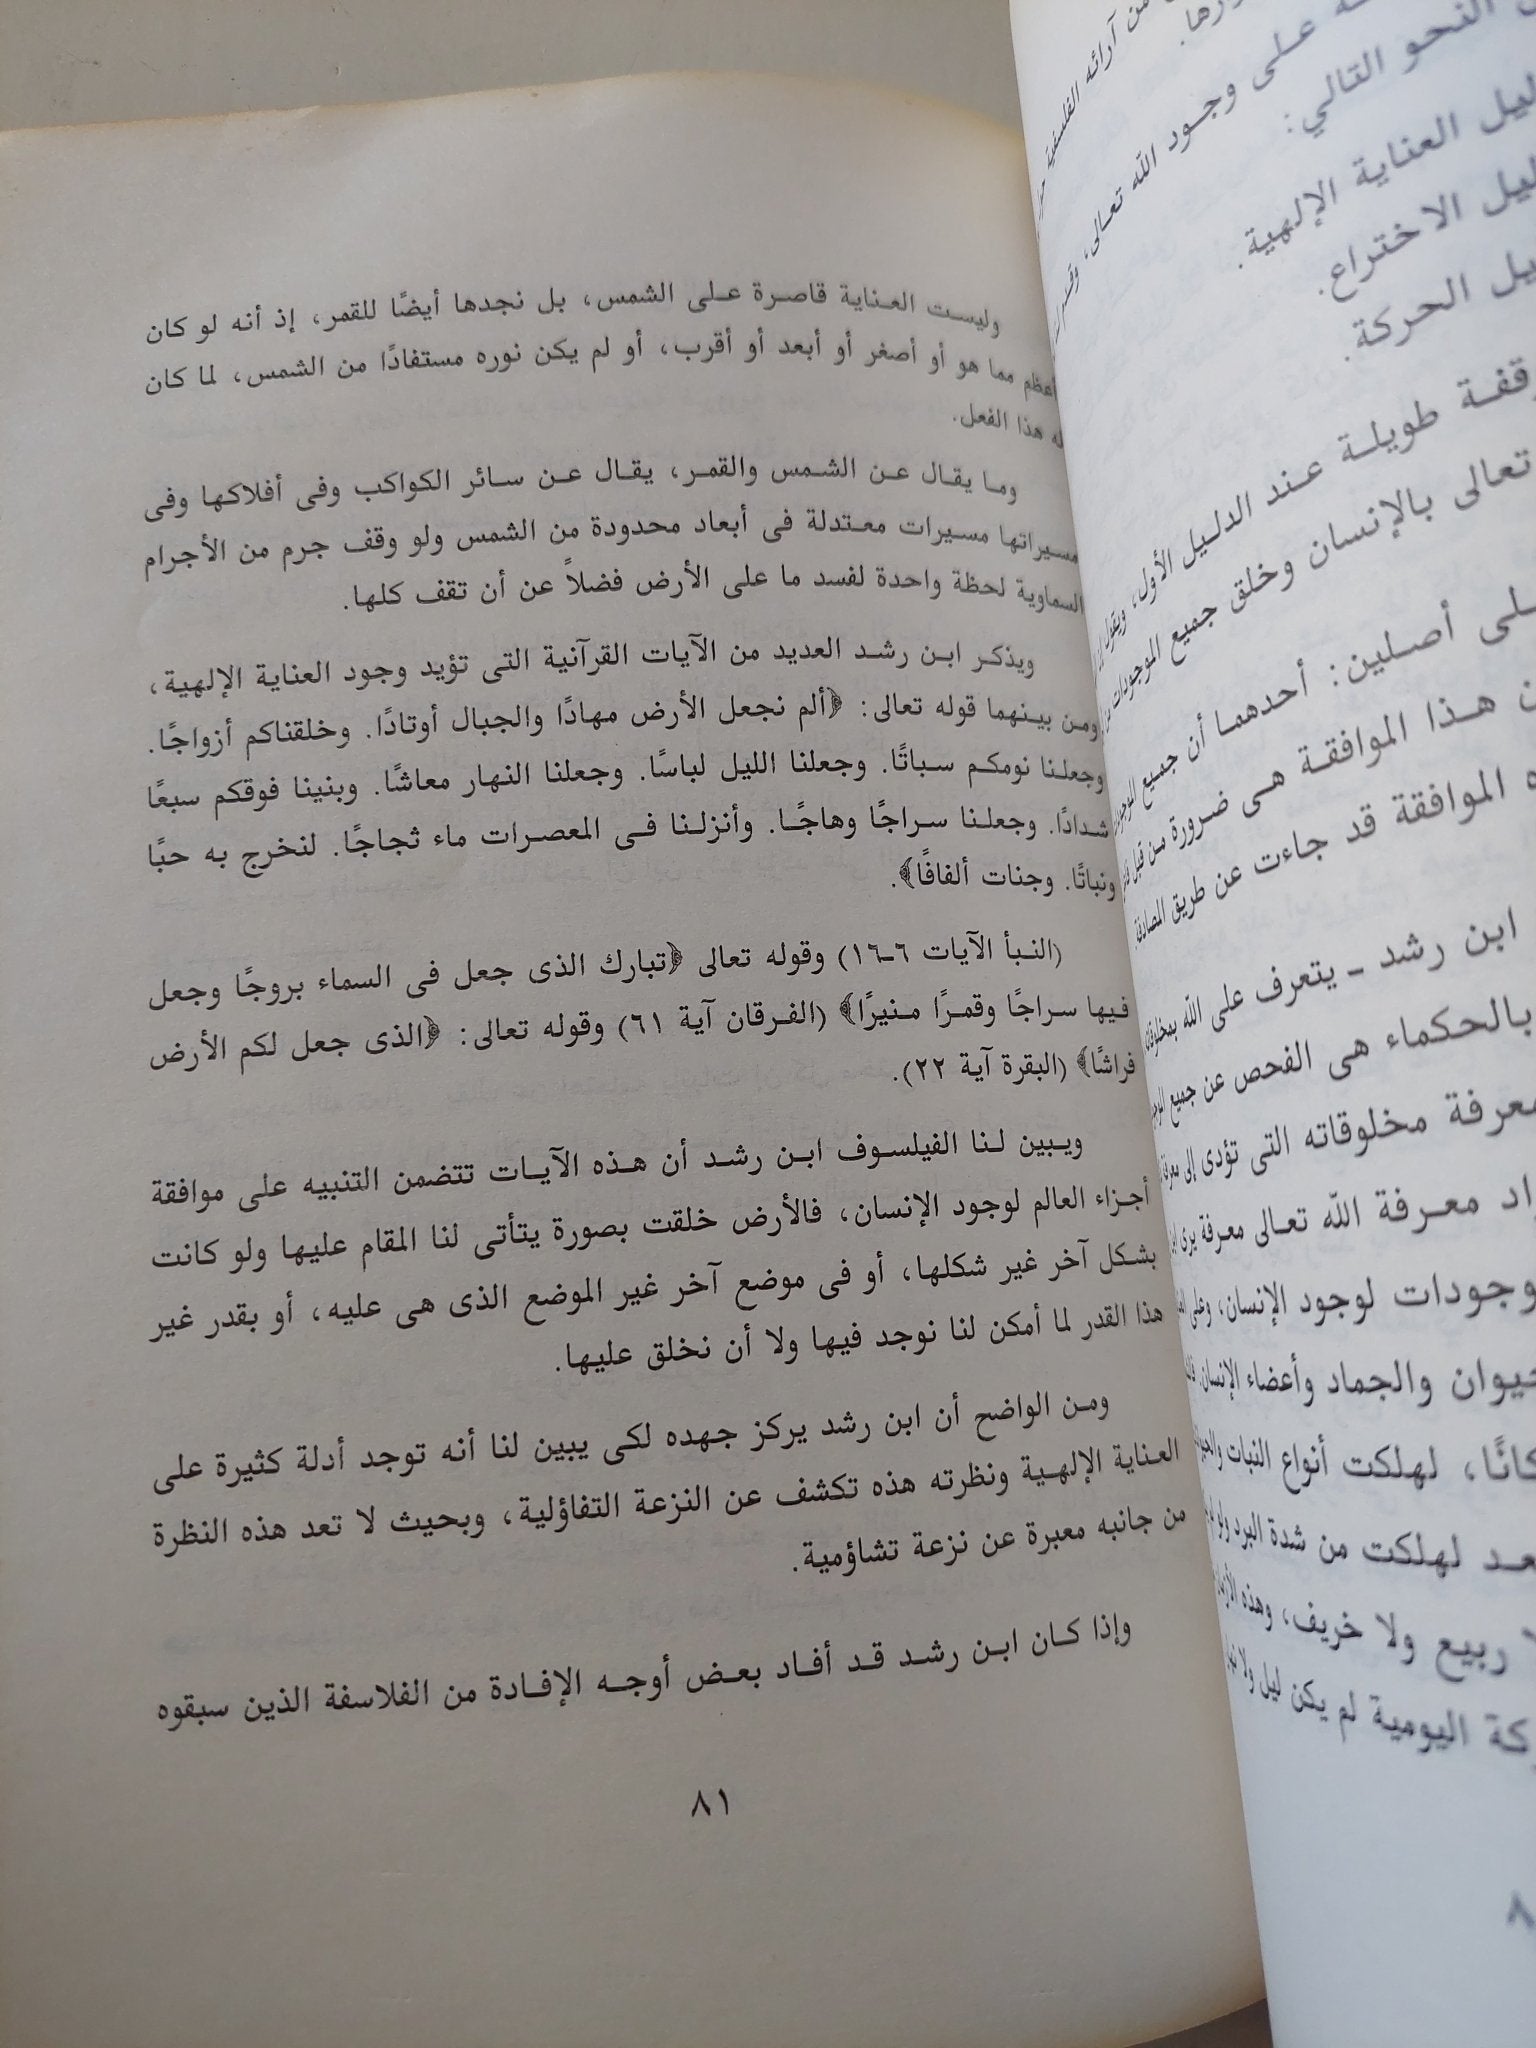 من آرائه الفلسفية
على وجود الله تعالى،
النحو التالي:
العناية الإلهية.
الاختراع.
الحركة.
طويلة عند الدليل الأول، ويقول
تعالى بالإنسان وخلق جميع الموجودات
أصلين: أحدهما أن جميع
هذا الموافقة هى ضرورة من قبل
الموافقة قد جاءت عن طريق المصادفة
ابن رشد ـ يتعرف على الله
بالحكماء هى الفحص عن جميع
معرفة مخلوقاته التى تؤدى إلى
معرفة الله تعالى معرفة يرى
لوجود الإنسان،
والجماد وأعضاء الإنسان.
لهلكت أنواع النبات
لهلكت من شدة البرد
ربيع ولا خريف، وهذه
اليومية لم يكن ليل ولا
وليست العناية قاصرة على الشمس، بل نجدها أيضًا للقمر، إذ أنه لو كان
أعظم مما هو أو أصغر أو أبعد أو أقرب، أو لم يكن نوره مستفادًا من الشمس، لما كان
له هذا الفعل.
وما يقال عن الشمس والقمر، يقال عن سائر الكواكب وفى أفلاكها وفى
مسيراتها مسيرات معتدلة فى أبعاد محدودة من الشمس ولو وقف جرم من الأجرام
السماوية لحظة واحدة لفسد ما على الأرض فضلاً عن أن تقف كلها.
ويذكر ابن رشد العديد من الآيات القرآنية التى تؤيد وجود العناية الإلهية،
ومن بينهما قوله تعالى: ﴿ألم نجعل الأرض مهادًا والجبال أوتادًا. وخلقناكم أزواجًا.
وجعلنا نومكم سباتًا. وجعلنا الليل لباسًا. وجعلنا النهار معاشًا. وبنينا فوقكم سبعًا
شدادًا. وجعلنا سراجًا وهاجًا. وأنزلنا فى المعصرات ماء ثجاجًا. لنخرج به حبًا
ونباتًا. وجنات ألفافًا﴾.
(النبأ الآيات ٦ـ١٦) وقوله تعالى ﴿تبارك الذى جعل فى السماء بروجًا وجعل
فيها سراجًا وقمرًا منيرًا﴾ (الفرقان آية ٦١) وقوله تعالى: ﴿الذى جعل لكم الأرض
فراشًا﴾ (البقرة آية ٢٢).
ويبين لنا الفيلسوف ابن رشد أن هذه الآيات تتضمن التنبيه على موافقة
أجزاء العالم لوجود الإنسان، فالأرض خلقت بصورة يتأتى لنا المقام عليها ولو كانت
بشكل آخر غير شكلها، أو فى موضع آخر غير الموضع الذى هى عليه، أو بقدر غير
هذا القدر لما أمكن لنا نوجد فيها ولا أن نخلق عليها.
ومن الواضح أن ابن رشد يركز جهده لكى يبين لنا أنه توجد أدلة كثيرة على
العناية الإلهية ونظرته هذه تكشف عن النزعة التفاؤلية، وبحيث لا تعد هذه النظرة
من جانبه معبرة عن نزعة تشاؤمية.
وإذا كان ابن رشد قد أفاد بعض أوجه الإفادة من الفلاسفة الذين سبقوه
٨١